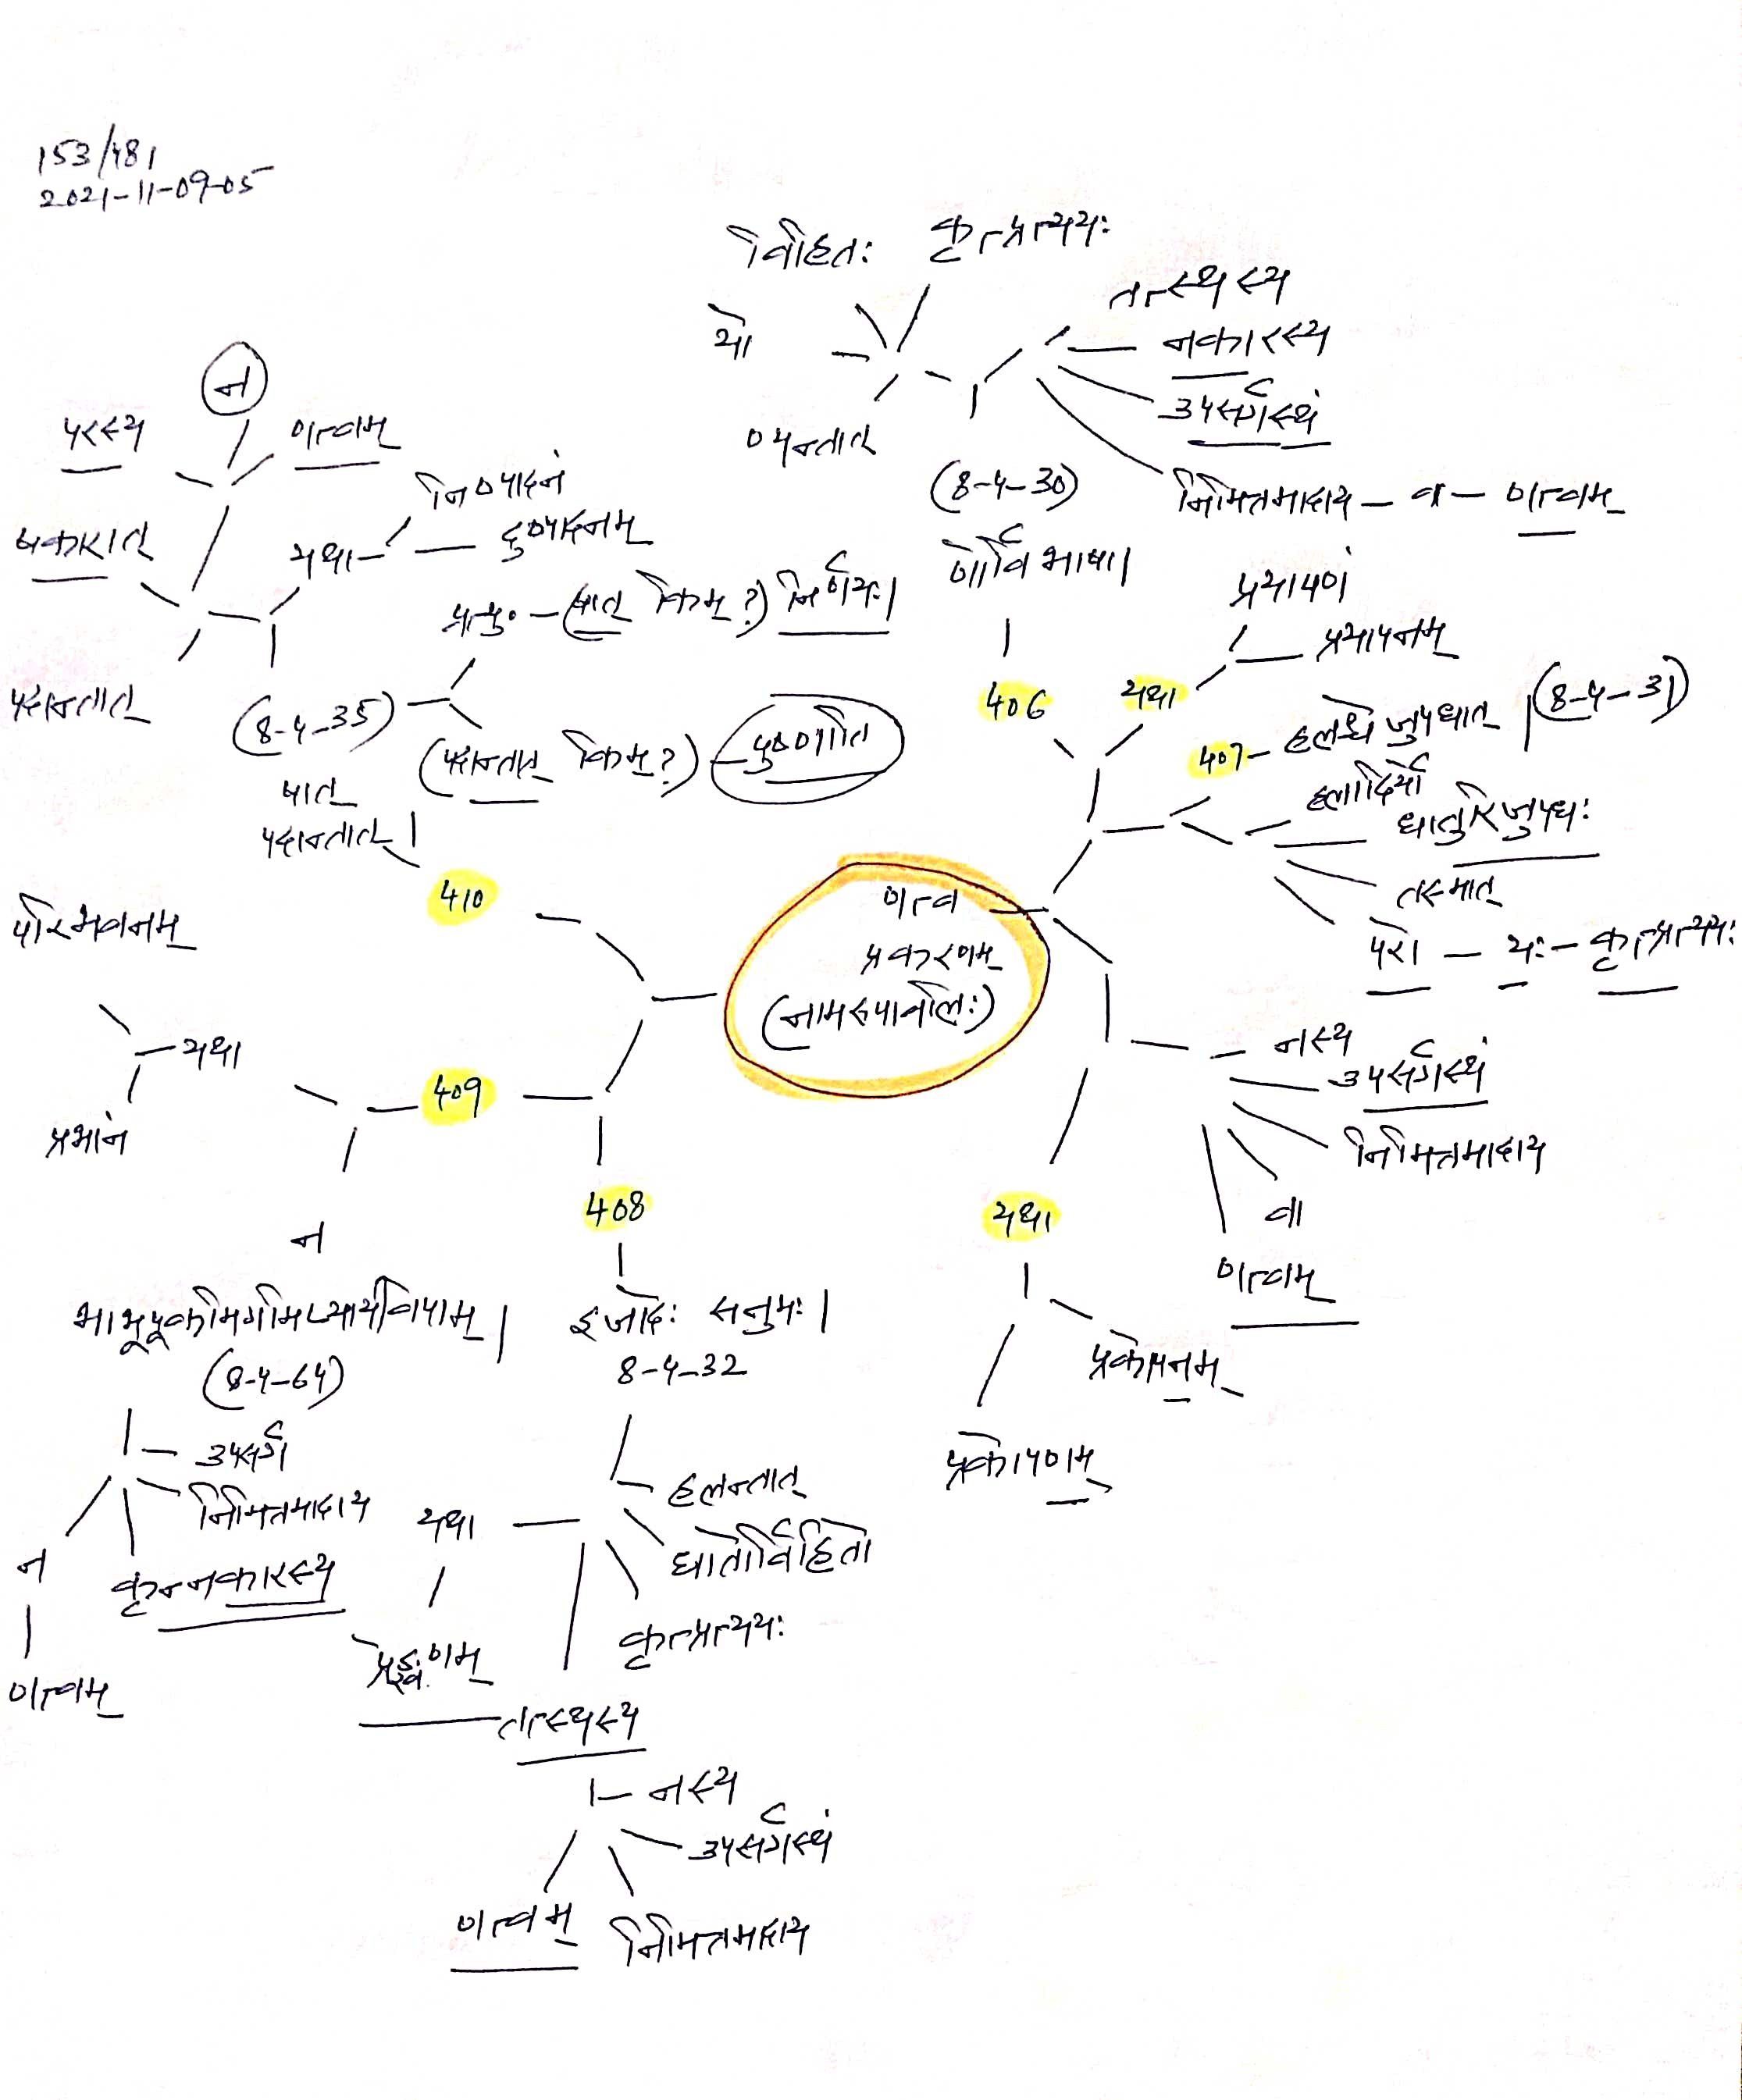 153/481
2021-11-09-05
विहितः
कृत्प्रत्ययः
यो
ण्यन्तात्
तत्स्थस्य
नकारस्य
उपसर्गस्थं
निमित्तमादाय - वा - णत्वम्
(8-4-30)
णेर्विभाषा।
406
यथा
प्रयापणं
प्रयापनम्
407 - हलश्चेजुपधात् । (8-4-31)
हलादिर्यो
धातुरिजुपधः
तस्मात्
परो - यः - कृत्प्रत्ययः
नस्य
उपसर्गस्थं
निमित्तमादाय
वा
णत्वम्
यथा
प्रकोपनम्
प्रकोपणम्
णत्व
प्रकरणम्
(नामरूपावलिः)
न
परस्य
णत्वम्
षकारात्
पदान्तात्
यथा -
निष्पादनं
दुष्पादनम्
(षात् किम्?) निर्णयः।
(8-4-35)
(पदान्तात् किम्?) - पुष्णाति
षात्
पदान्तात् ।
410
परिभवनम्
यथा
प्रभानं
409
न
भाभूपूकमिगमिप्यायीवेपाम् ।
(8-4-64)
उपसर्ग
निमित्तमादाय
कृन्नकारस्य
न
णत्वम्
408
इजादेः सनुमः।
8-4-32
हलन्तात्
धातोर्विहितो
कृत्प्रत्ययः
यथा
तत्स्थस्य
नस्य
उपसर्गस्थं
निमित्तमादाय
णत्वम्